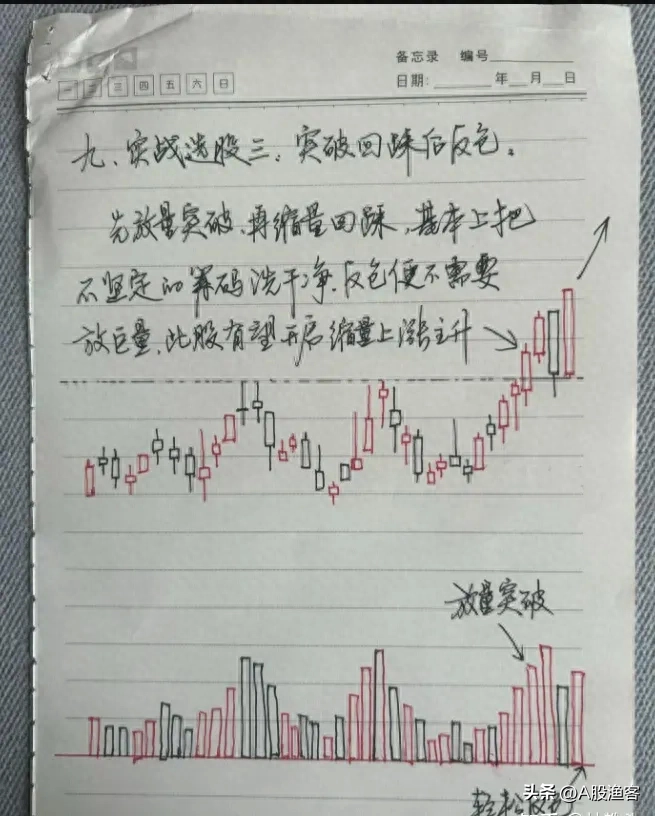 备忘录 编号
日期: 年 月 日
一 二 三 四 五 六 日
九、实战选股三、突破回踩后反包。
先放量突破,再缩量回踩,基本上把
不坚定的筹码洗干净,反包便不需要
放巨量,此股有望开启缩量上涨主升
放量突破
轻松反包
头条 @A股渔客